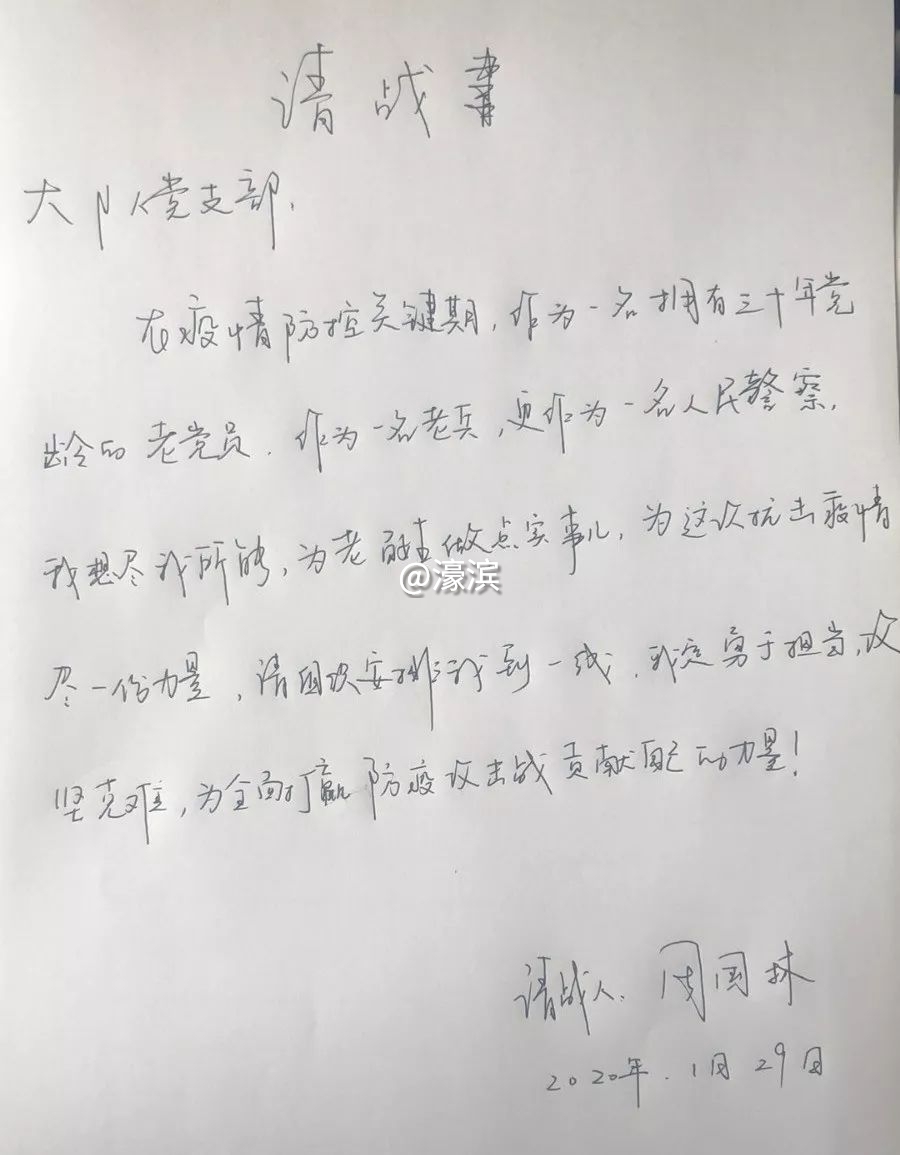 请战书
大队党支部.
在疫情防控关键期,作为一名拥有三十年党
龄的老党员.作为一名老兵,更作为一名人民警察.
我想尽我所能,为老百姓做点实事儿,为这次抗击疫情
@濠滨
尽一份力量,请组织安排我到一线.我定勇于担当,攻
坚克难,为全面打赢防疫攻击战贡献自己的力量!
请战人.周国林
2020年.1月29日